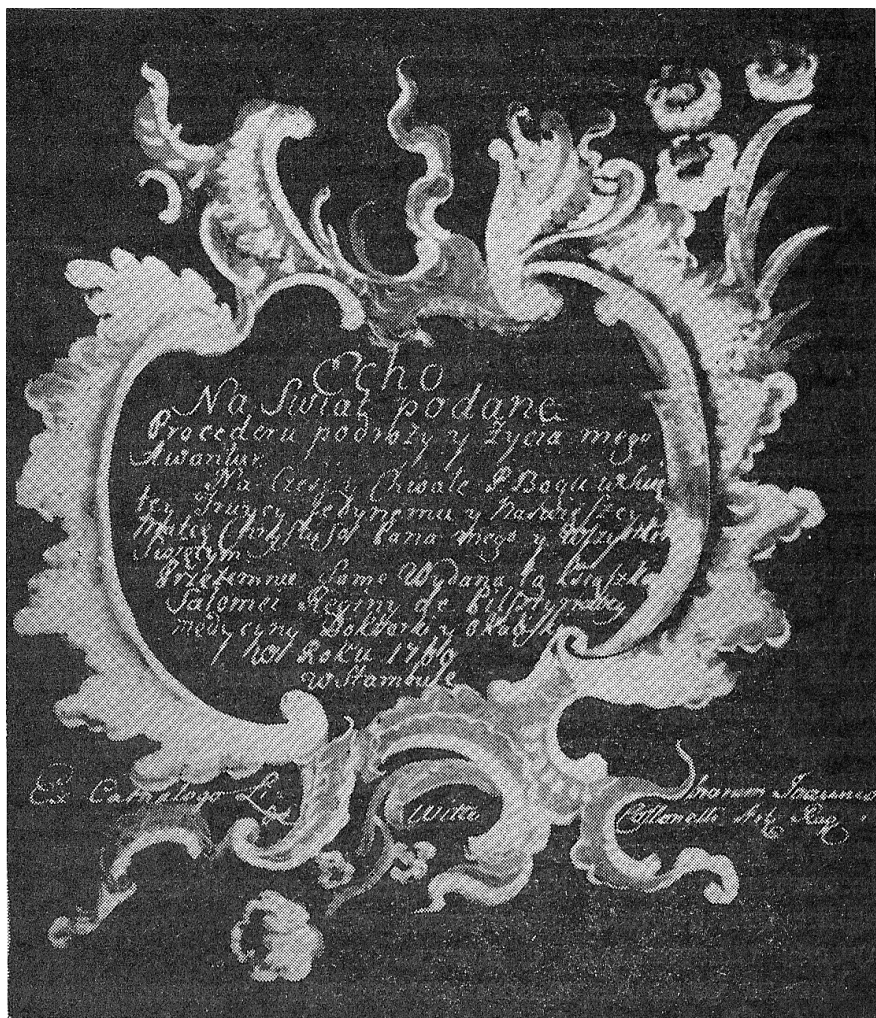 Echo
Na Swiat podane
Procederu podroży y Życia mego
Awantur
Na Cześć y Chwałe P. Bogu w Swię
tey Jedynemu y Nayswięszey
Matce Chrystusa Pana mego y Wszystkim
Swiętym
Przezemnie Same Wydana ta Ksiąszka
Salomei Reginy de Pilsztynowey
medycyny Doktorki y Okulistki
w Roku 1760
w Stambule
Ex Catalogo
Witte
Ioannis